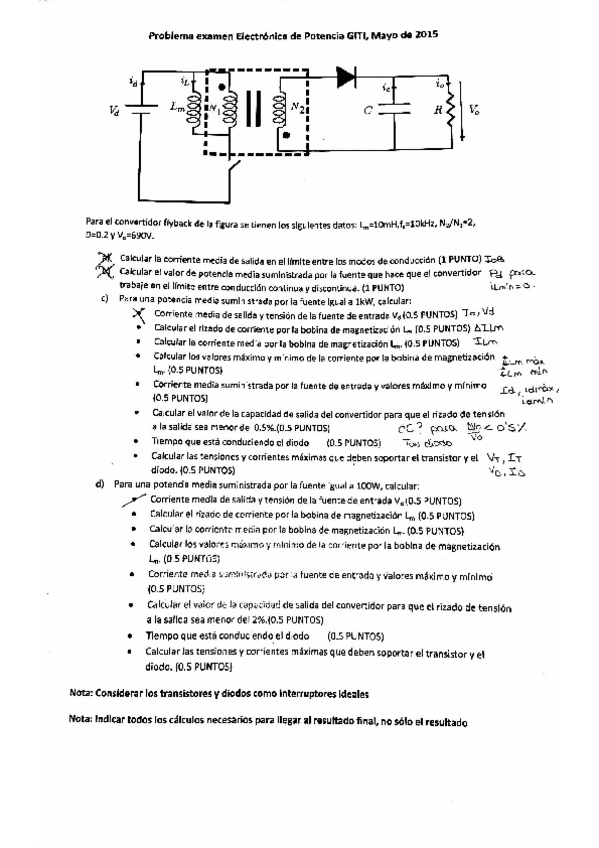 Problema examen Electrónica de Potencia GITI, Mayo de 2015
i_d i_L i_c i_o
V_d L_m N_1 N_2 C R V_o
Para el convertidor flyback de la figura se tienen los siguientes datos: L_m=10mH, f_s=10kHz, N_2/N_1=2,
D=0.2 y V_o=690V.
Calcular la corriente media de salida en el límite entre los modos de conducción (1 PUNTO) I_oB
Calcular el valor de potencia media suministrada por la fuente que hace que el convertidor Pd para
trabaje en el límite entre conducción continua y discontinua. (1 PUNTO) iLmin=0.
c) Para una potencia media suministrada por la fuente igual a 1kW, calcular:
Corriente media de salida y tensión de la fuente de entrada V_d (0.5 PUNTOS) Io, Vd
• Calcular el rizado de corriente por la bobina de magnetización L_m (0.5 PUNTOS) ΔILm
• Calcular la corriente media por la bobina de magnetización L_m. (0.5 PUNTOS) ILm
• Calcular los valores máximo y mínimo de la corriente por la bobina de magnetización iLm máx
L_m. (0.5 PUNTOS) iLm min
• Corriente media suministrada por la fuente de entrada y valores máximo y mínimo Id, idmáx,
(0.5 PUNTOS) idmin
• Calcular el valor de la capacidad de salida del convertidor para que el rizado de tensión
a la salida sea menor de 0.5%.(0.5 PUNTOS) ¿C? para ΔVo/Vo < 0'5%
• Tiempo que está conduciendo el diodo (0.5 PUNTOS) Ton diodo
• Calcular las tensiones y corrientes máximas que deben soportar el transistor y el V_T, I_T
diodo. (0.5 PUNTOS) V_D, I_D
d) Para una potencia media suministrada por la fuente igual a 100W, calcular:
Corriente media de salida y tensión de la fuente de entrada V_d (0.5 PUNTOS)
• Calcular el rizado de corriente por la bobina de magnetización L_m (0.5 PUNTOS)
• Calcular la corriente media por la bobina de magnetización L_m. (0.5 PUNTOS)
• Calcular los valores máximo y mínimo de la corriente por la bobina de magnetización
L_m. (0.5 PUNTOS)
• Corriente media suministrada por la fuente de entrada y valores máximo y mínimo
(0.5 PUNTOS)
• Calcular el valor de la capacidad de salida del convertidor para que el rizado de tensión
a la salida sea menor del 2%.(0.5 PUNTOS)
• Tiempo que está conduciendo el diodo (0.5 PUNTOS)
• Calcular las tensiones y corrientes máximas que deben soportar el transistor y el
diodo. (0.5 PUNTOS)
Nota: Considerar los transistores y diodos como interruptores ideales
Nota: Indicar todos los cálculos necesarios para llegar al resultado final, no sólo el resultado